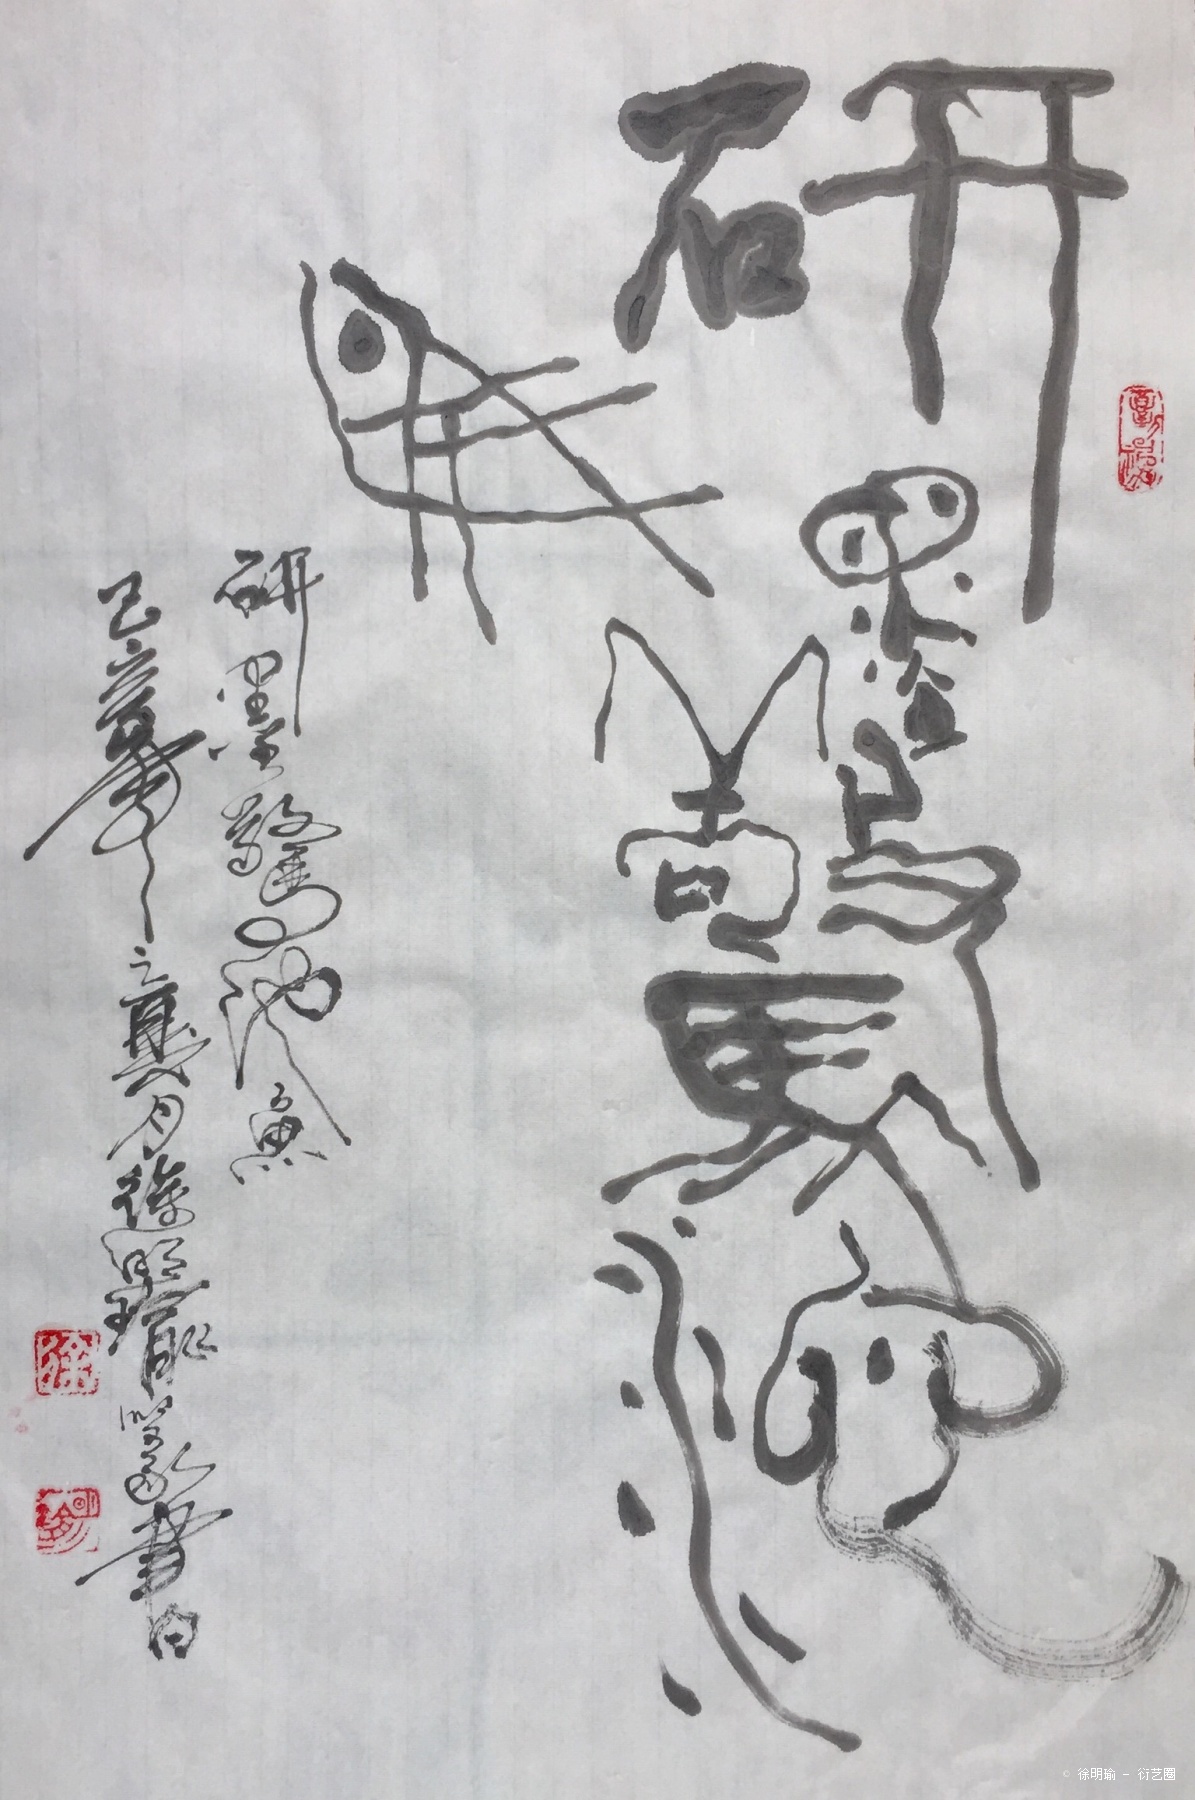 研墨驚池魚
研墨驚池魚
己亥年之夏月徐明瑜篆書
© 徐明瑜 - 衍艺圈